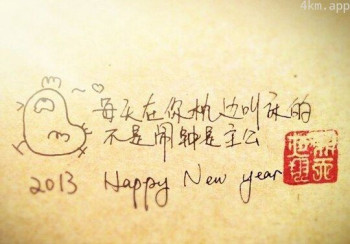 4km.app
每天在你枕边叫床的
不是闹钟是主公
2013 Happy New year